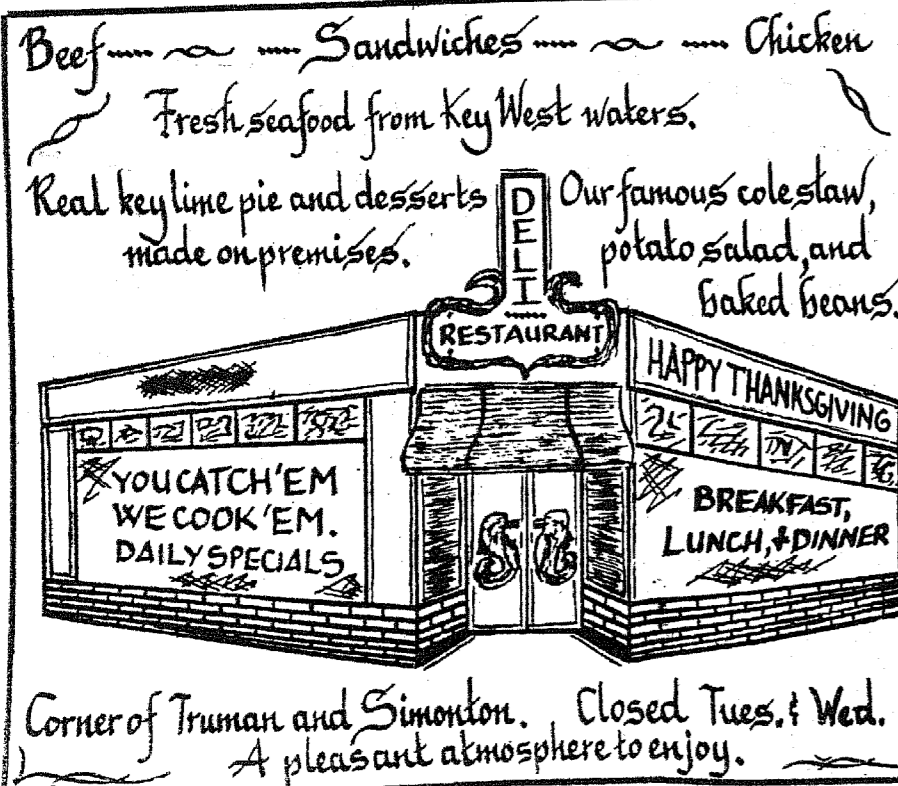 Beef Sandwiches Chicken
Fresh seafood from Key West waters.
Real key lime pie and desserts
made on premises.
Our famous cole slaw,
potato salad, and
baked beans.
DELI
RESTAURANT
HAPPY THANKSGIVING
YOU CATCH 'EM
WE COOK 'EM.
DAILY SPECIALS
BREAKFAST,
LUNCH, & DINNER
Corner of Truman and Simonton. Closed Tues. & Wed.
A pleasant atmosphere to enjoy.